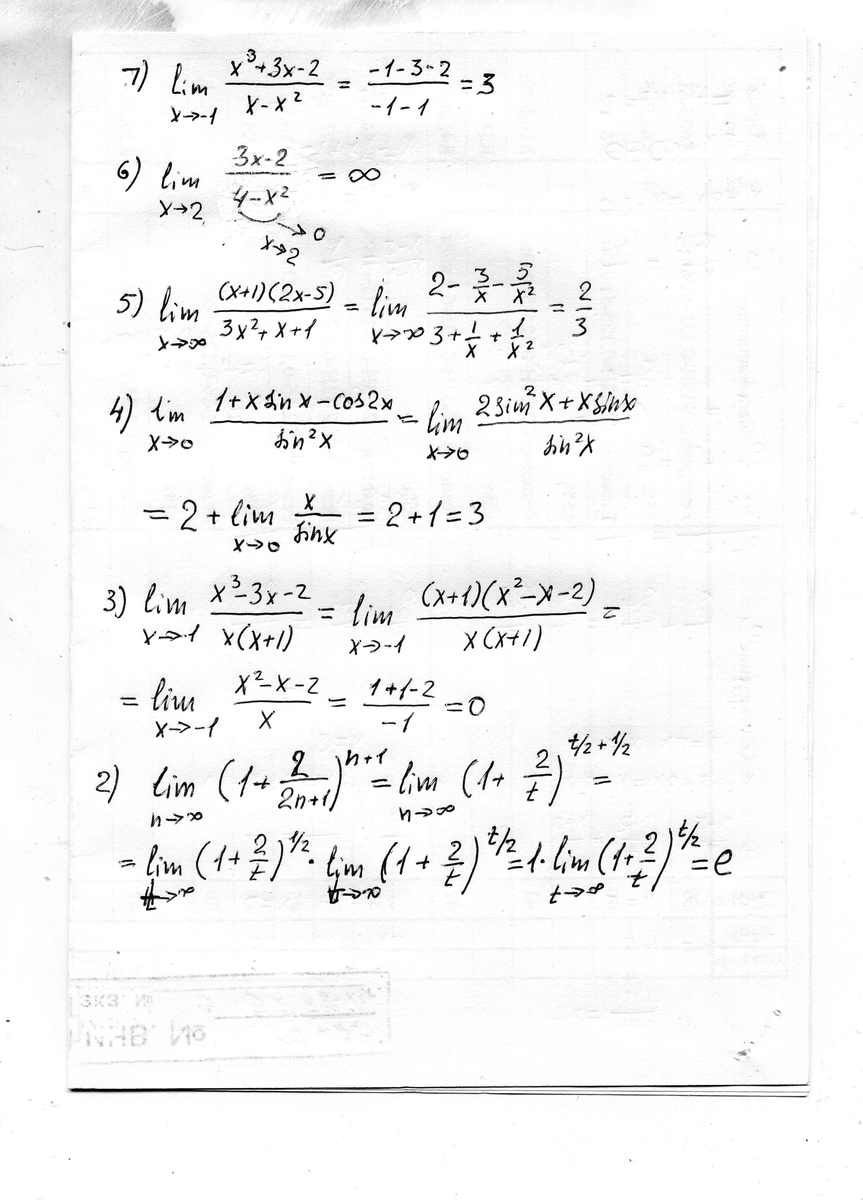 7) lim x→-1 (x³+3x-2)/(x-x²) = (-1-3-2)/(-1-1) = 3
6) lim x→2 (3x-2)/(4-x²) = ∞
→0
x→2
5) lim x→∞ ((x+1)(2x-5))/(3x²+x+1) = lim x→∞ (2-3/x-5/x²)/(3+1/x+1/x²) = 2/3
4) lim x→0 (1+x sin x-cos2x)/(sin²x) = lim x→0 (2sin²x+x sinx)/(sin²x)
= 2 + lim x→0 x/sinx = 2+1=3
3) lim x→-1 (x³-3x-2)/(x(x+1)) = lim x→-1 ((x+1)(x²-x-2))/(x(x+1)) =
= lim x→-1 (x²-x-2)/x = (1+1-2)/(-1) = 0
2) lim n→∞ (1+2/(2n+1))^(n+1) = lim n→∞ (1+2/t)^(t/2+1/2) =
= lim t→∞ (1+2/t)^(1/2) · lim t→∞ (1+2/t)^(t/2) = 1· lim t→∞ (1+2/t)^(t/2) = e